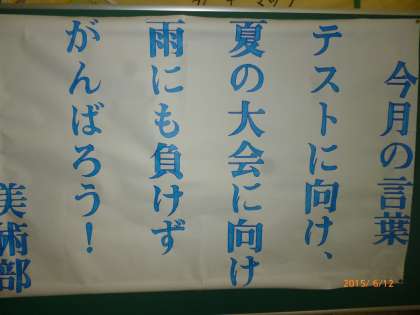 今月の言葉
テストに向け、
夏の大会に向け
雨にも負けず
がんばろう！
美術部
2015/ 6/12